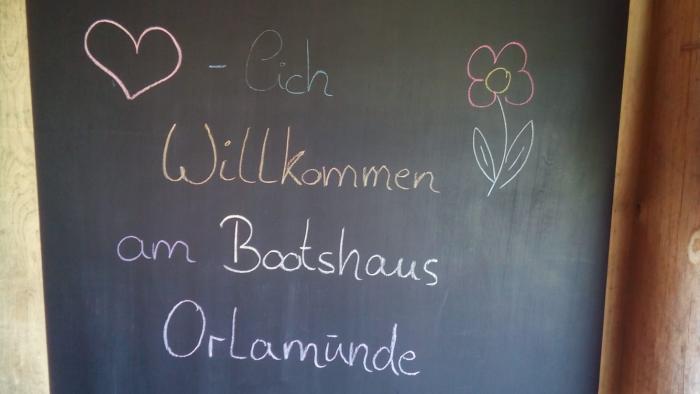 - lich
Willkommen
am Bootshaus
Orlamünde